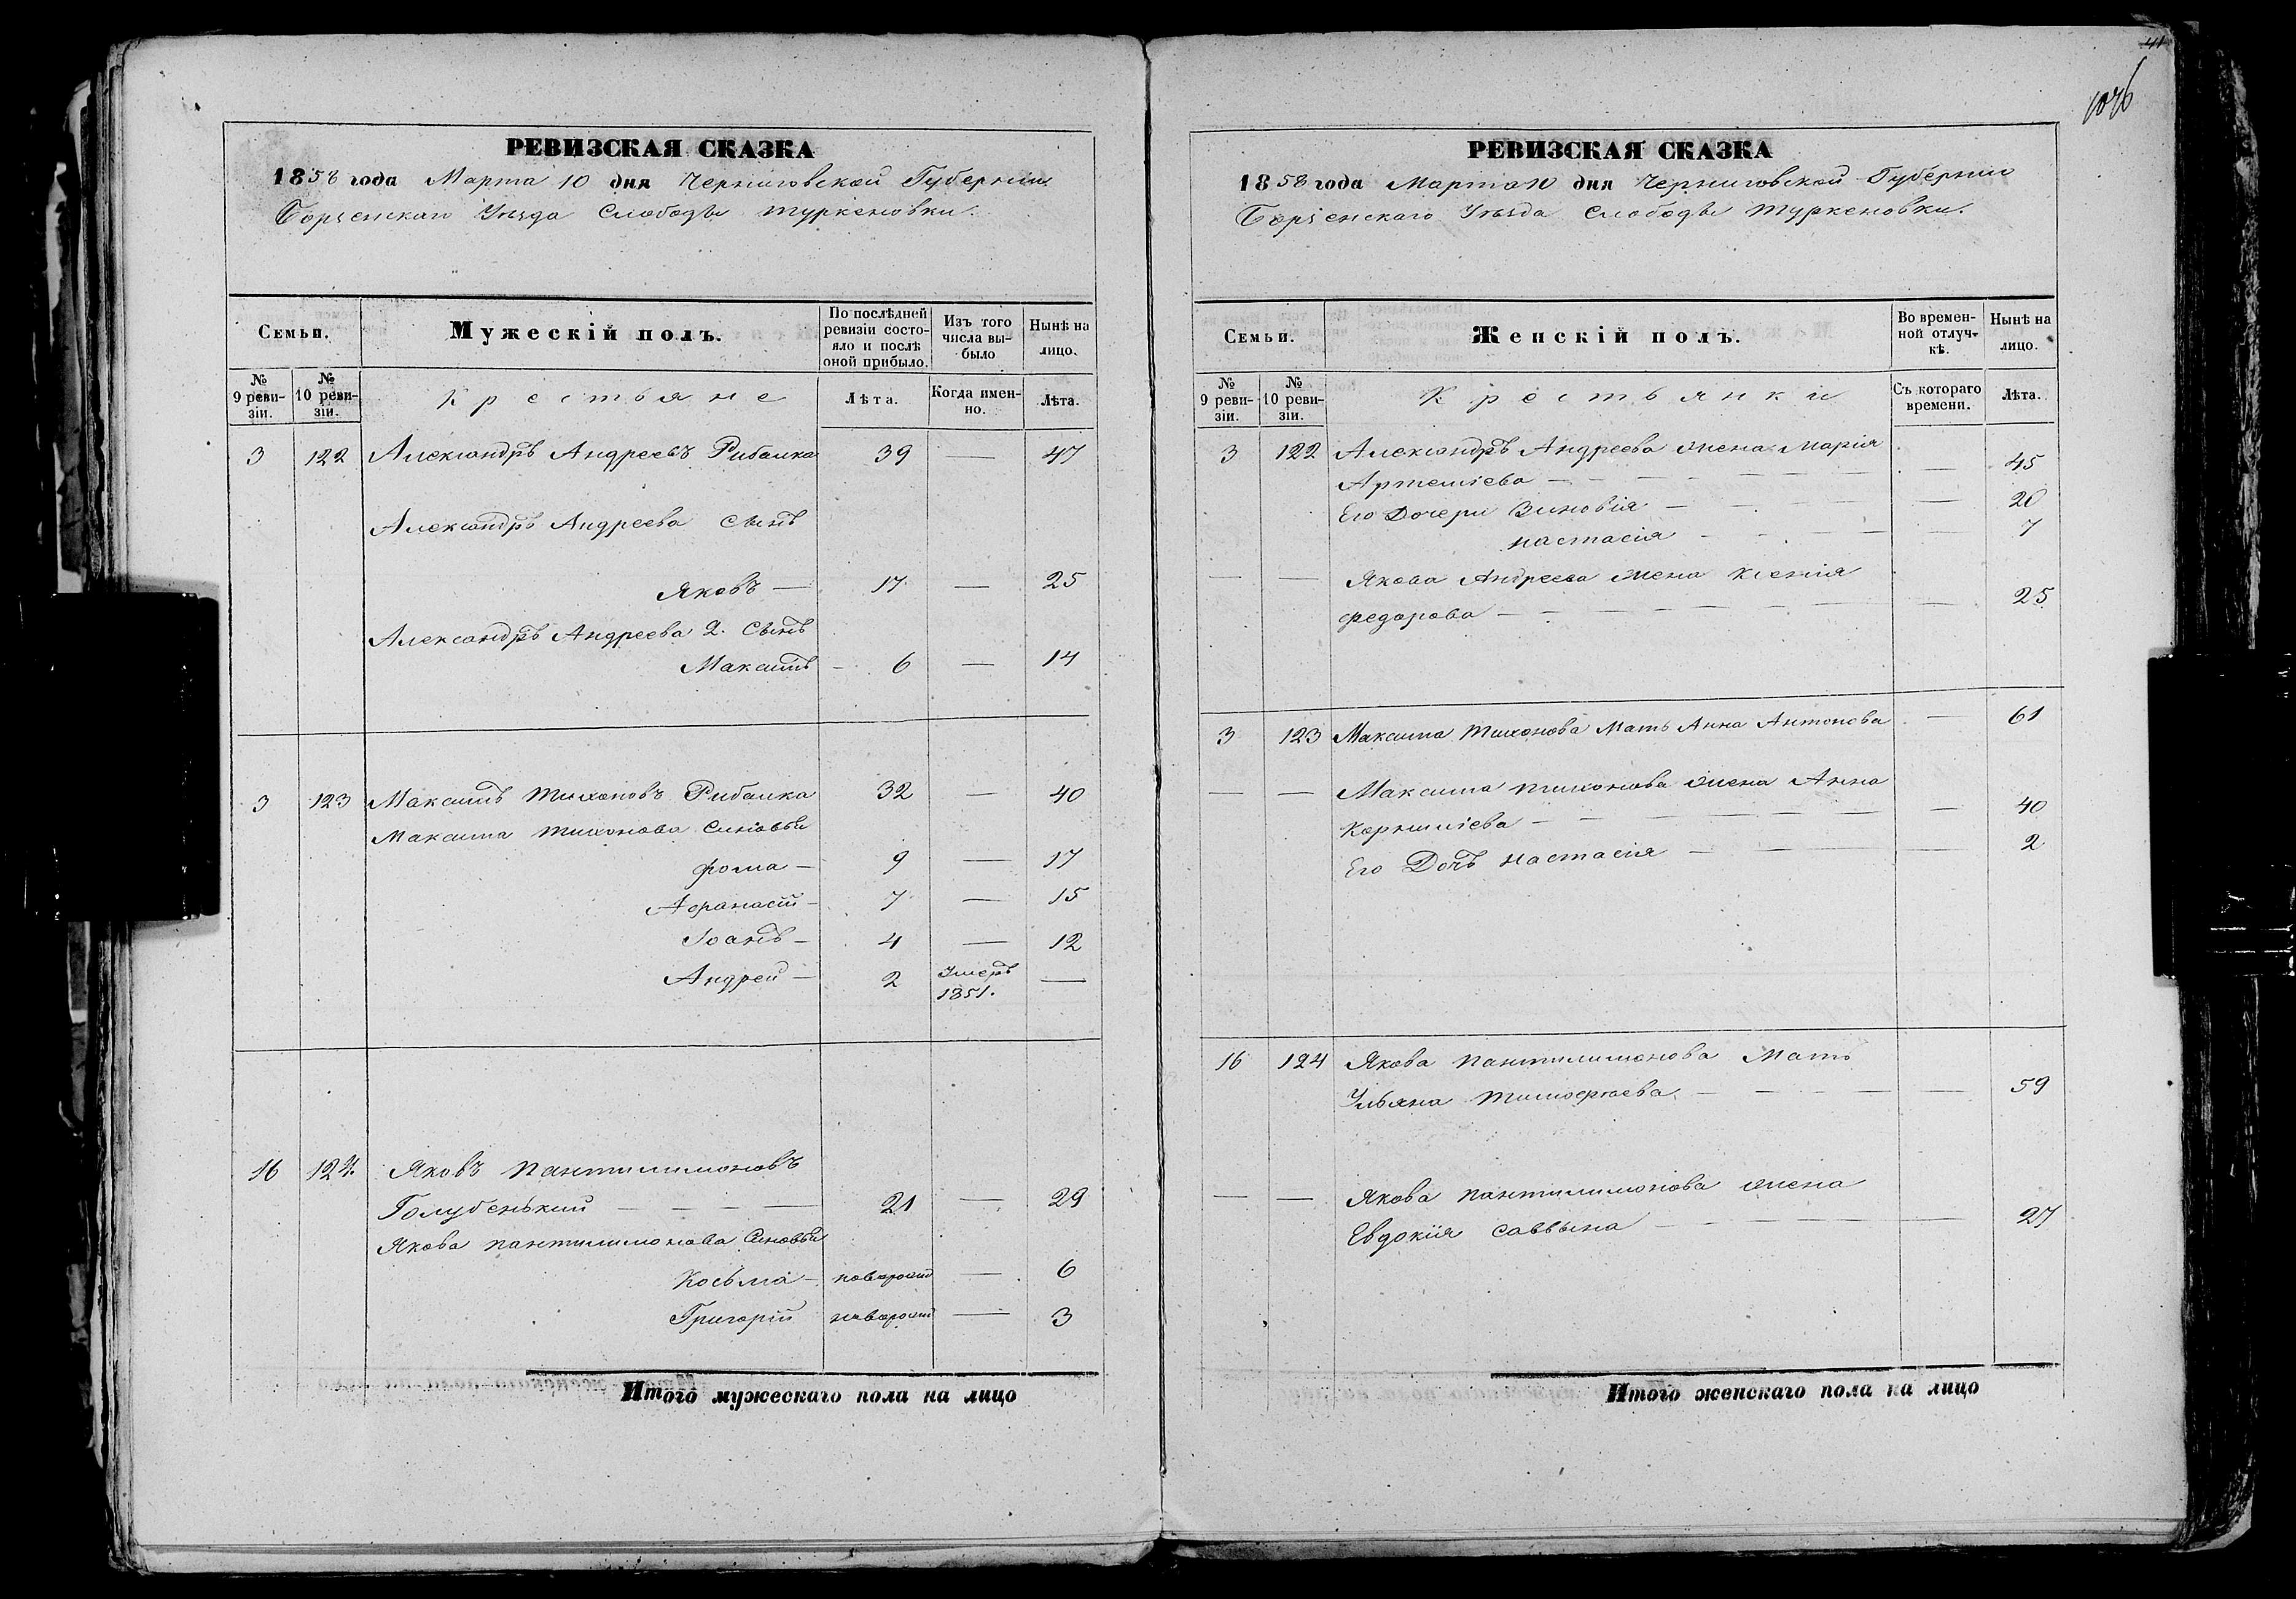 РЕВИЗСКАЯ СКАЗКА
1858 года Марта 10 дня Черниговской Губернии
Борзенскаго Уезда Слободы Туркеновки.
Семьи.
Мужескій полъ.
По послѣдней ревизіи состояло и послѣ оной прибыло.
Изъ того числа выбыло
Нынѣ на лицо.
№ 9 ревизіи.
№ 10 ревизіи.
Крестьяне
Лѣта.
Когда именно.
Лѣта.
3 122 Александръ Андреевъ Рибалка 39 — 47
Александръ Андреева сынъ
Яковъ — 17 — 25
Александръ Андреева 2. Сынъ
Максимъ — 6 — 14
3 123 Максимъ Тихоновъ Рибалка 32 — 40
Максима Тихонова Синовья
Фома — 9 — 17
Афанасій — 7 — 15
Іоанъ — 4 — 12
Андрей — 2 Умеръ 1851. —
16 124. Яковъ Пантилимоновъ
Голубенький — — — — 21 — 29
Якова Пантилимонова Синовья
Косьма — новорожд — 6
Григорій новорожд — 3
Итого мужескаго пола на лицо
41
1076
РЕВИЗСКАЯ СКАЗКА
1858 года Марта 10 дня Черниговской Губернии
Борзенскаго Уезда Слободы Туркеновки.
Семьи.
Женскій полъ.
Во временной отлучкѣ.
Нынѣ на лицо.
№ 9 ревизіи.
№ 10 ревизіи.
Крестьянки
Съ котораго времени.
Лѣта.
3 122 Александръ Андреева жена Марія
Артеміева — — — — — 45
Его Дочери Зиновія — — — 20
Настасія — — — — 7
— — Якова Андреева жена Ксенія
Федорова — — — — — — 25
3 123 Максима Тихонова Мать Анна Антонова — 61
— — Максима Тихонова жена Анна
Корниліева — — — — — — 40
Его Дочь Настасія — — — — 2
16 124 Якова Пантилимонова Мать
Ульяна Тимофеева. — — — — — 59
— — Якова Пантилимонова жена
Евдокія Саввына — — — — — — 27
Итого женскаго пола на лицо